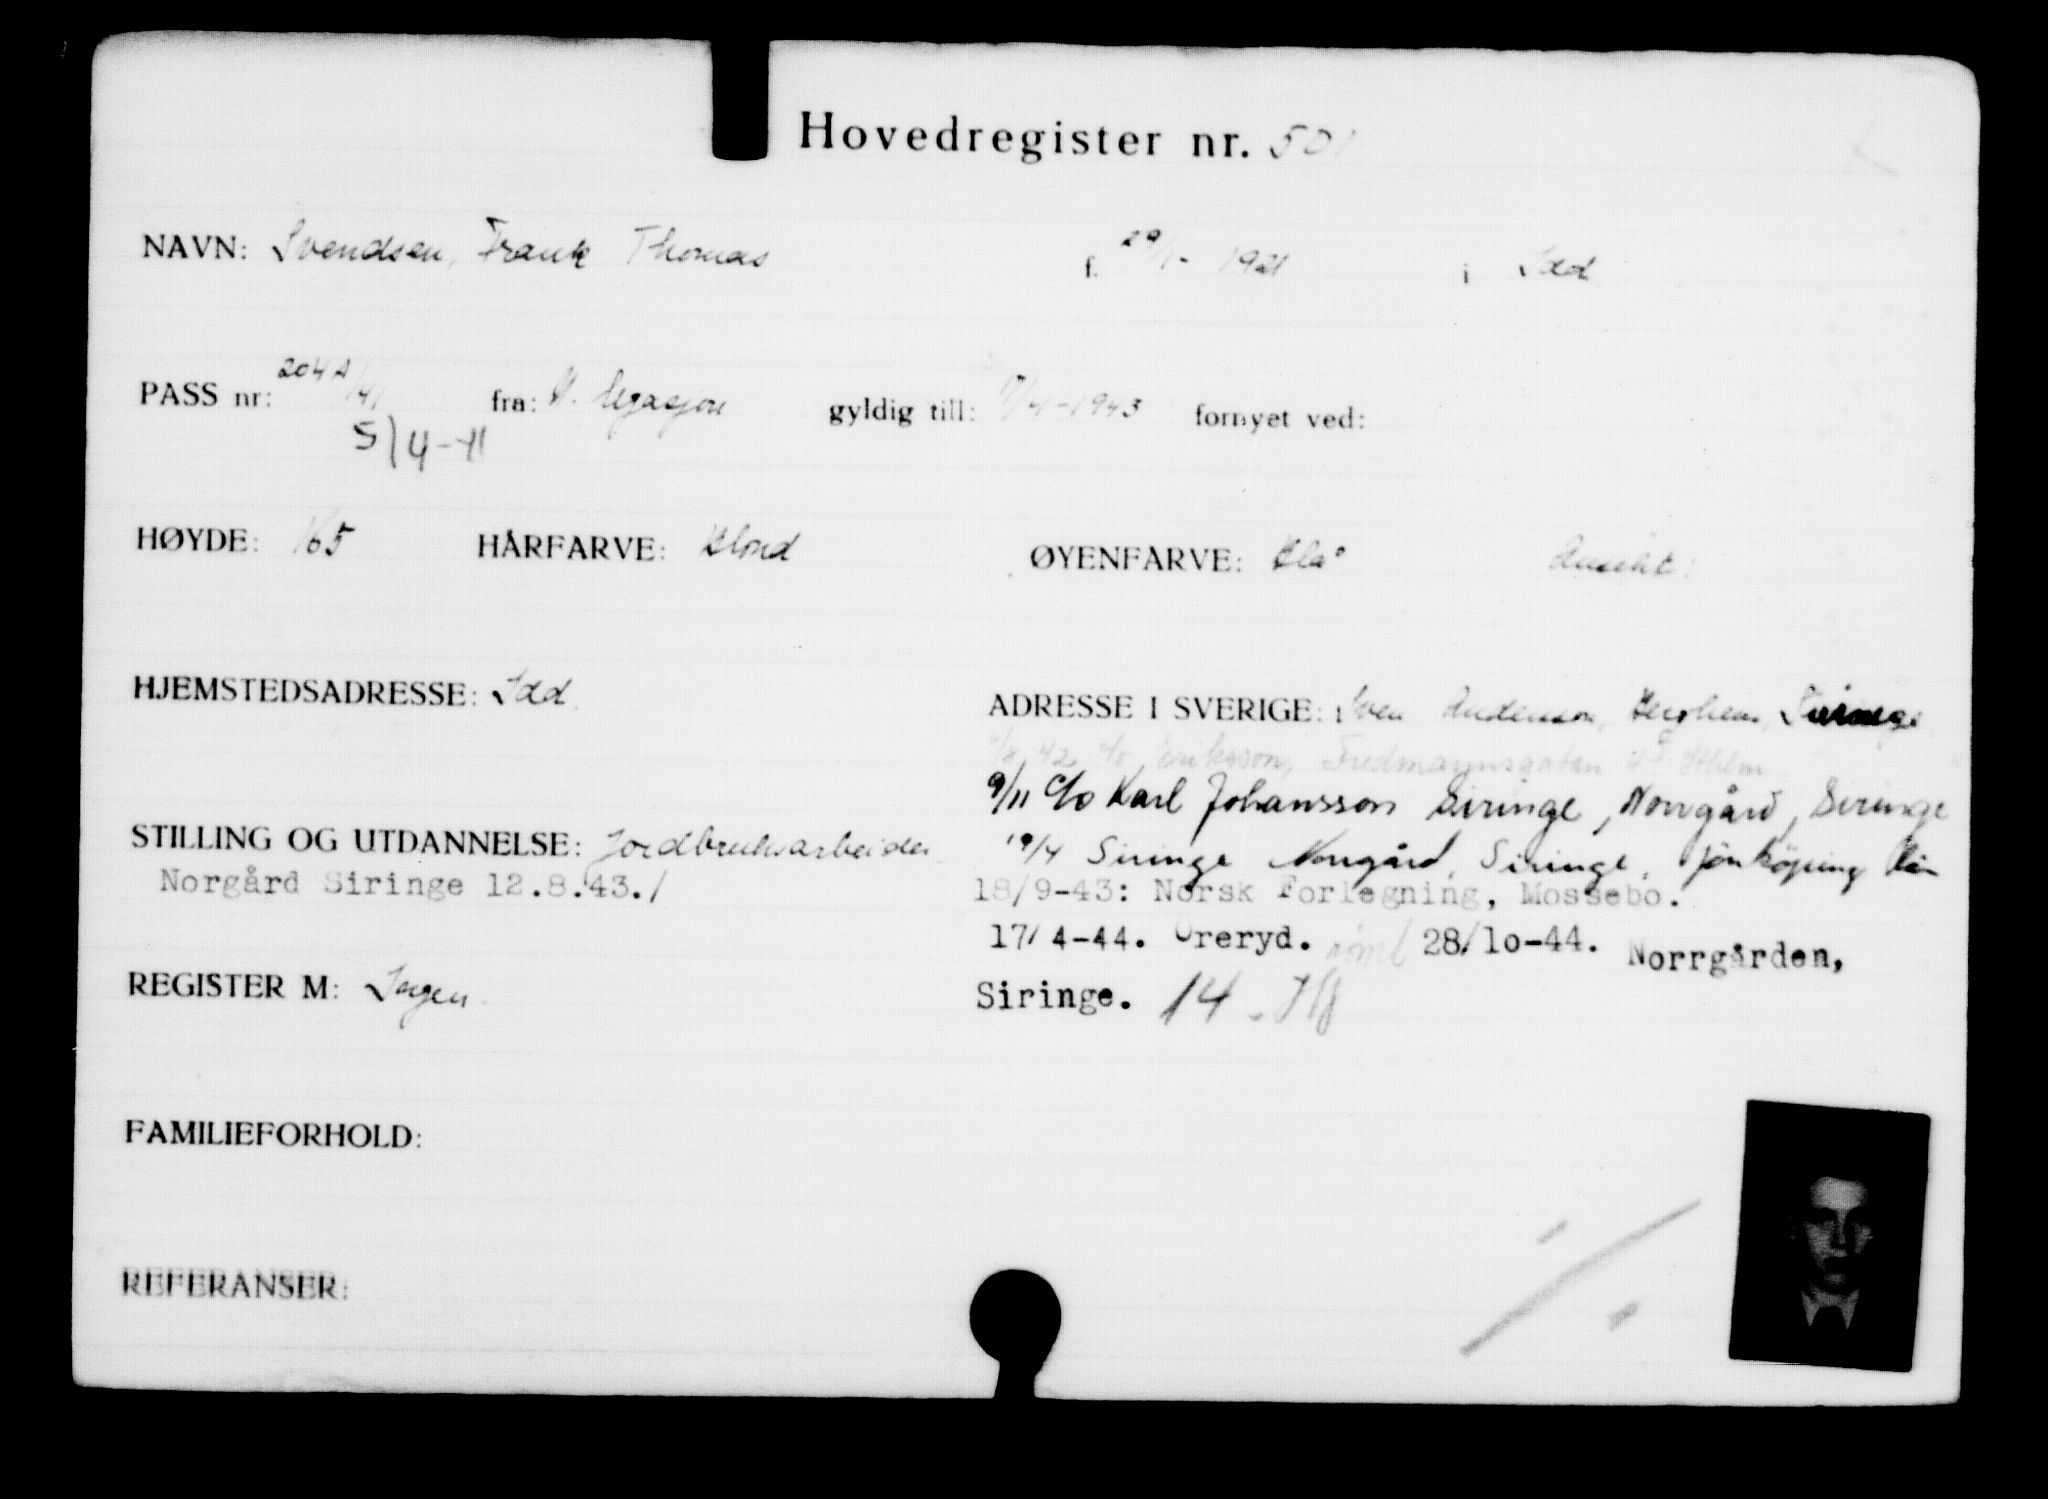 Hovedregister nr. 501
NAVN: Svendsen, Frank Thomas f. 29/1- 1921 i Idd
PASS nr: 204A/41 fra: N. legasjon gyldig till: 17/4-1943 fornyet ved:
5/4-41
HØYDE: 165 HÅRFARVE: Blond ØYENFARVE: Blå Ansikt:
HJEMSTEDSADRESSE: Idd
ADRESSE I SVERIGE: Sven Anderson, Berghem, Siringe
/8 42 c/o Eriksson, Fredmansgatan Sthlm
9/11 c/o Karl Johansson Siringe, Norrgård, Siringe
STILLING OG UTDANNELSE: Jordbruksarbeider
19/4 Siringe Norrgård, Siringe, Jönköping län
Norgård Siringe 12.8.43./
18/9-43: Norsk Forlegning, Mossebo.
17/4-44. Öreryd. 28/10-44. Norrgården,
Siringe. 14.
REGISTER M: Ingen
FAMILIEFORHOLD:
REFERANSER: